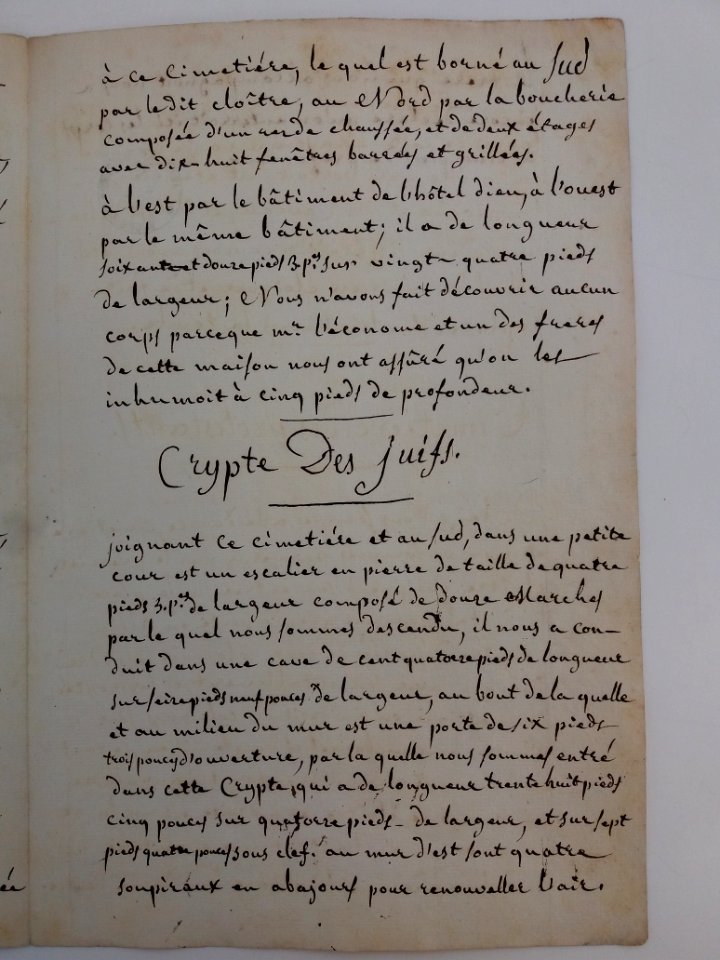 à ce Cimetiére, le quel est borné au Sud
par le dit cloître, au Nord par la boucherie
composée d'un rerde chaussée, et de deux étages
avec dix-huit fenêtres barrées et grillées.
à l'est par le bâtiment de l'hôtel dieu, à l'ouest
par le même bâtiment; il a de longueur
soixante et douze pieds 3. pes. sur vingt-quatre pieds
de largeur; Nous n'avons fait découvrir aucun
corps parceque mr. l'économe et un des freres
de cette maison nous ont assûré qu'on les
inhumoit à cinq pieds de profondeur.
Crypte Des Juifs.
joignant ce cimetiére et au sud, dans une petite
cour est un escalier en pierre de taille de quatre
pieds 3. pes. de largeur composé de douze Marches
par le quel nous sommes descendu, il nous a con-
duit dans une cave de cent quatorze pieds de longueur
sur seize pieds neuf pouces de largeur, au bout de la quelle
et au milieu du mur est une porte de six pieds
trois pouces d'ouverture, par la quelle nous sommes entré
dans cette Crypte, qui a de longueur trente huit pieds
cinq pouces sur quatorze pieds de largeur, et sur sept
pieds quatre pouces sous clef. au mur d'est sont quatre
soupiraux en abajours pour renouveller l'air.
ée